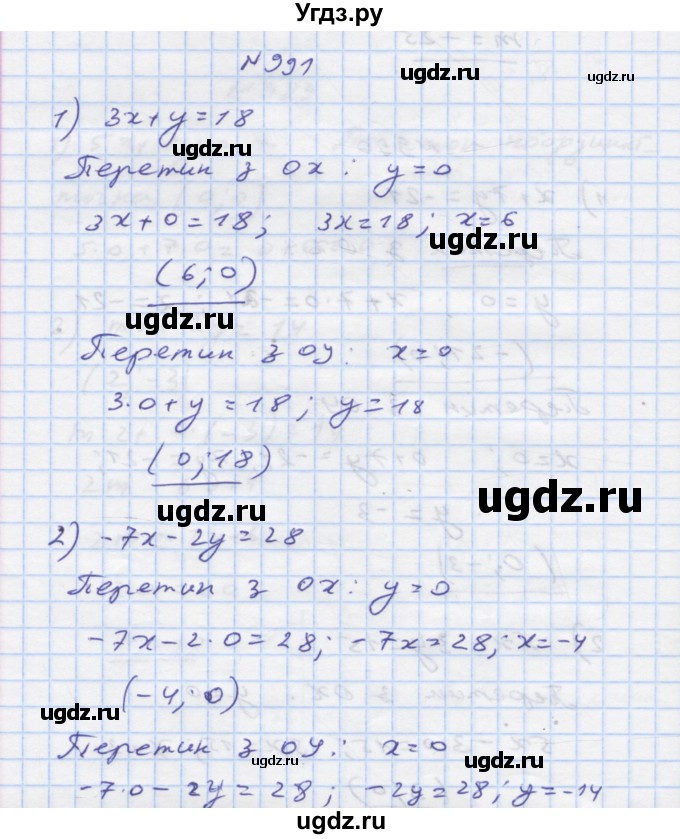 Угдз.ру
№991
ugdz.ru
ugdz.ru
1) 3x+y=18
Перетин з Ox: y=0
3x+0=18; 3x=18; x=6
ugdz.ru
(6;0)
ugdz.ru
Перетин з Oy: x=0
3·0+y=18; y=18
(0;18)
ugdz.ru
ugdz.ru
2) -7x-2y=28
Перетин з Ox: y=0
-7x-2·0=28; -7x=28; x=-4
(-4;0)
ugdz.ru
Перетин з Oy: x=0
ugdz.ru
ugdz.ru
-7·0-2y=28; -2y=28; y=-14